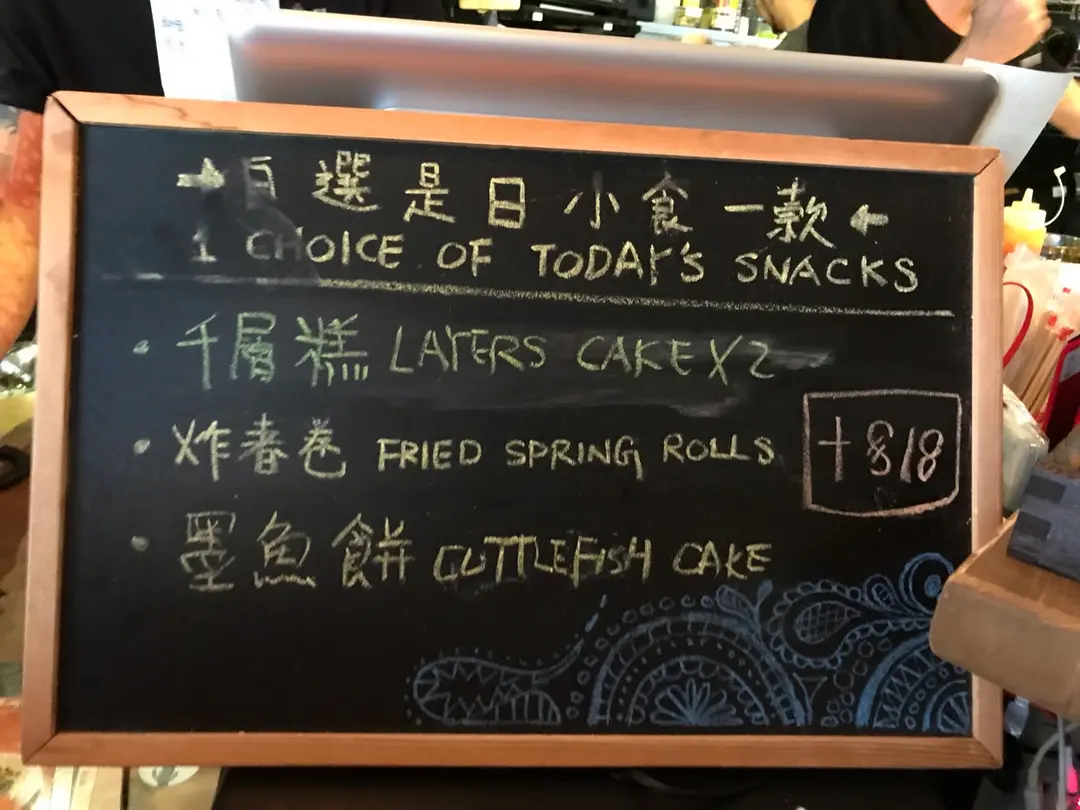 →自選是日小食一款←
1 CHOICE OF TODAY'S SNACKS
· 千層糕 LAYERS CAKE X2
· 炸春卷 FRIED SPRING ROLLS
+$18
· 墨魚餅 CUTTLEFISH CAKE